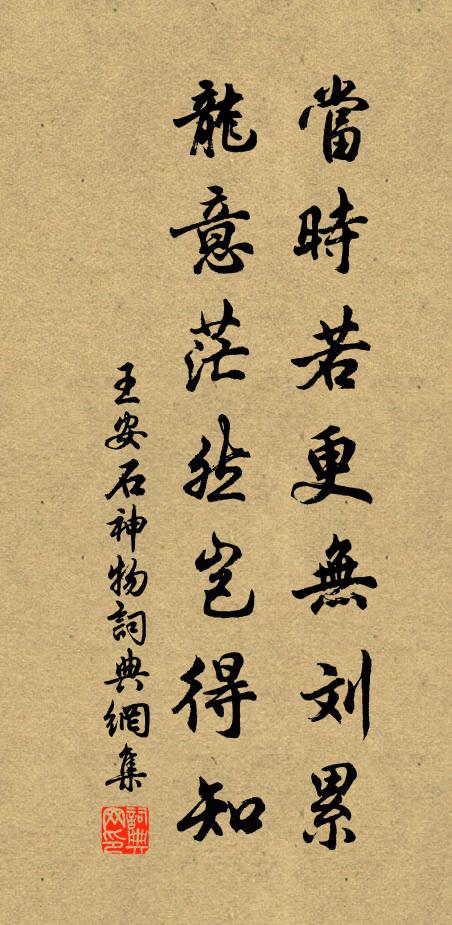 當時若更無刘累
龍意茫然岂得知
王安石神物詞典網集
詞典网印